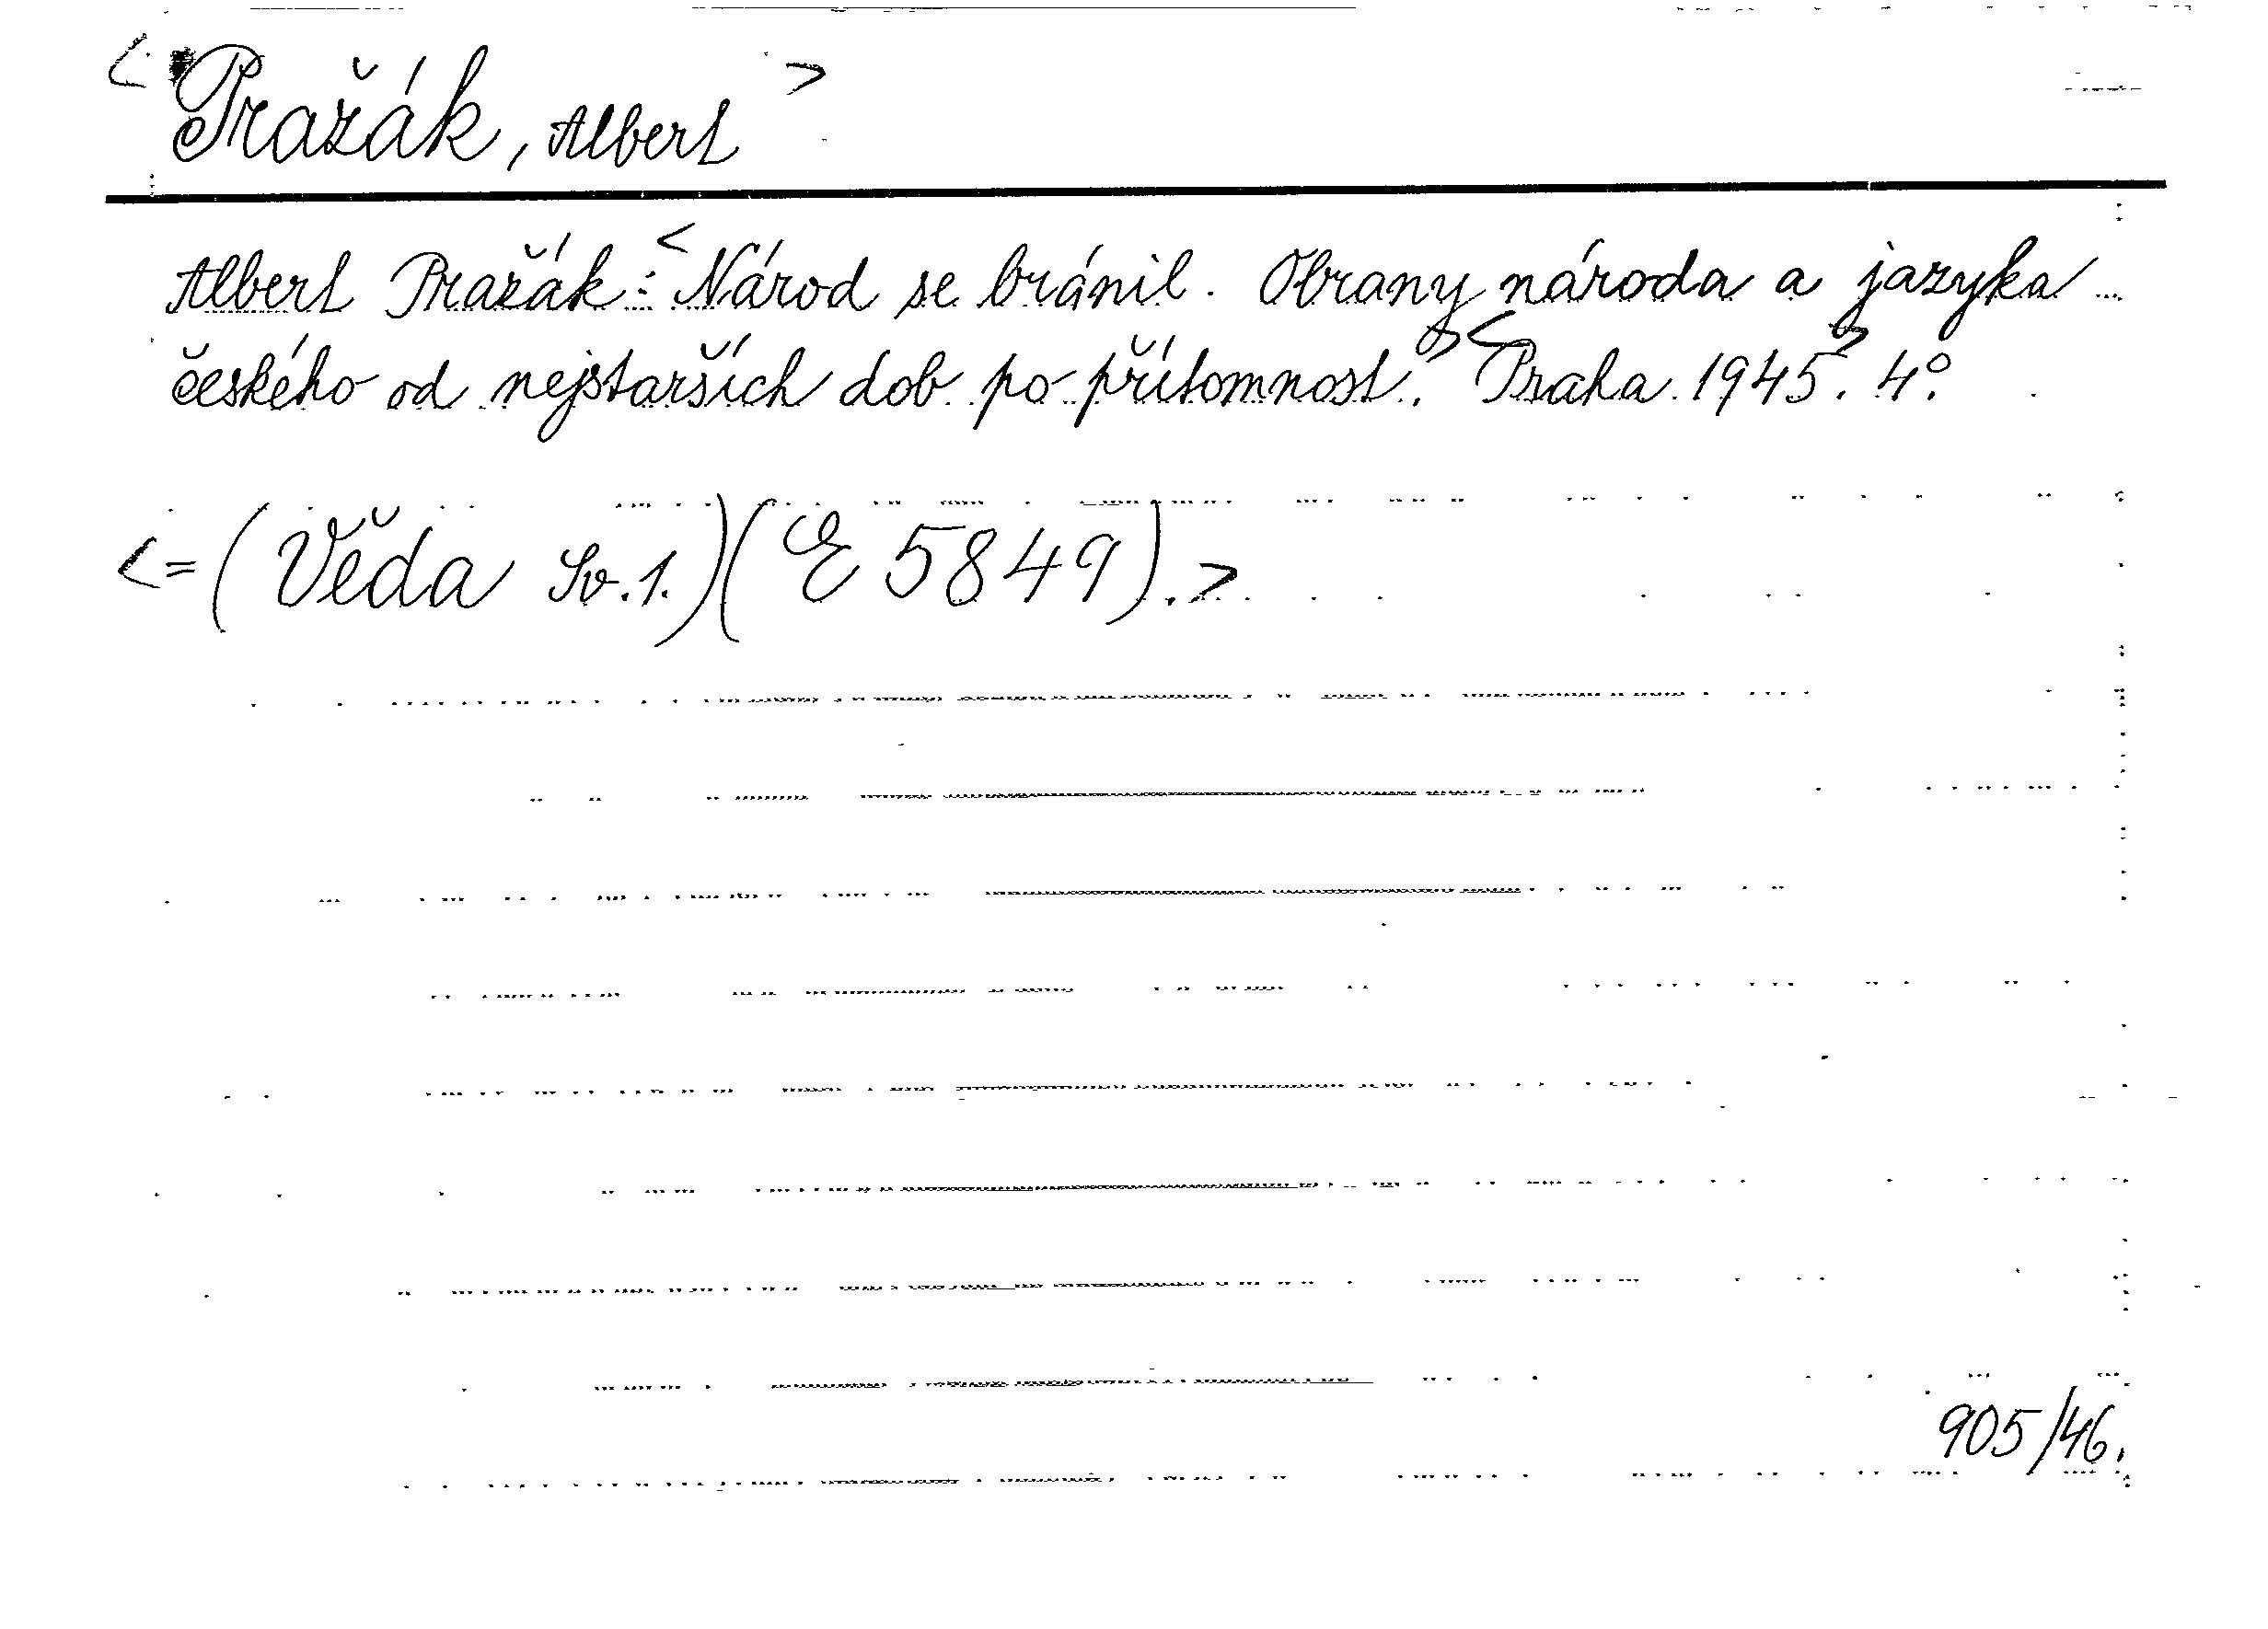 < Pražák, Albert >
Albert Pražák: < Národ se bránil. Obrany národa a jazyka
českého od nejstarších dob po přítomnost. > < Praha 1945. > 4°.
< = (Věda Sv. 1.) (E 5849). >
905/46.